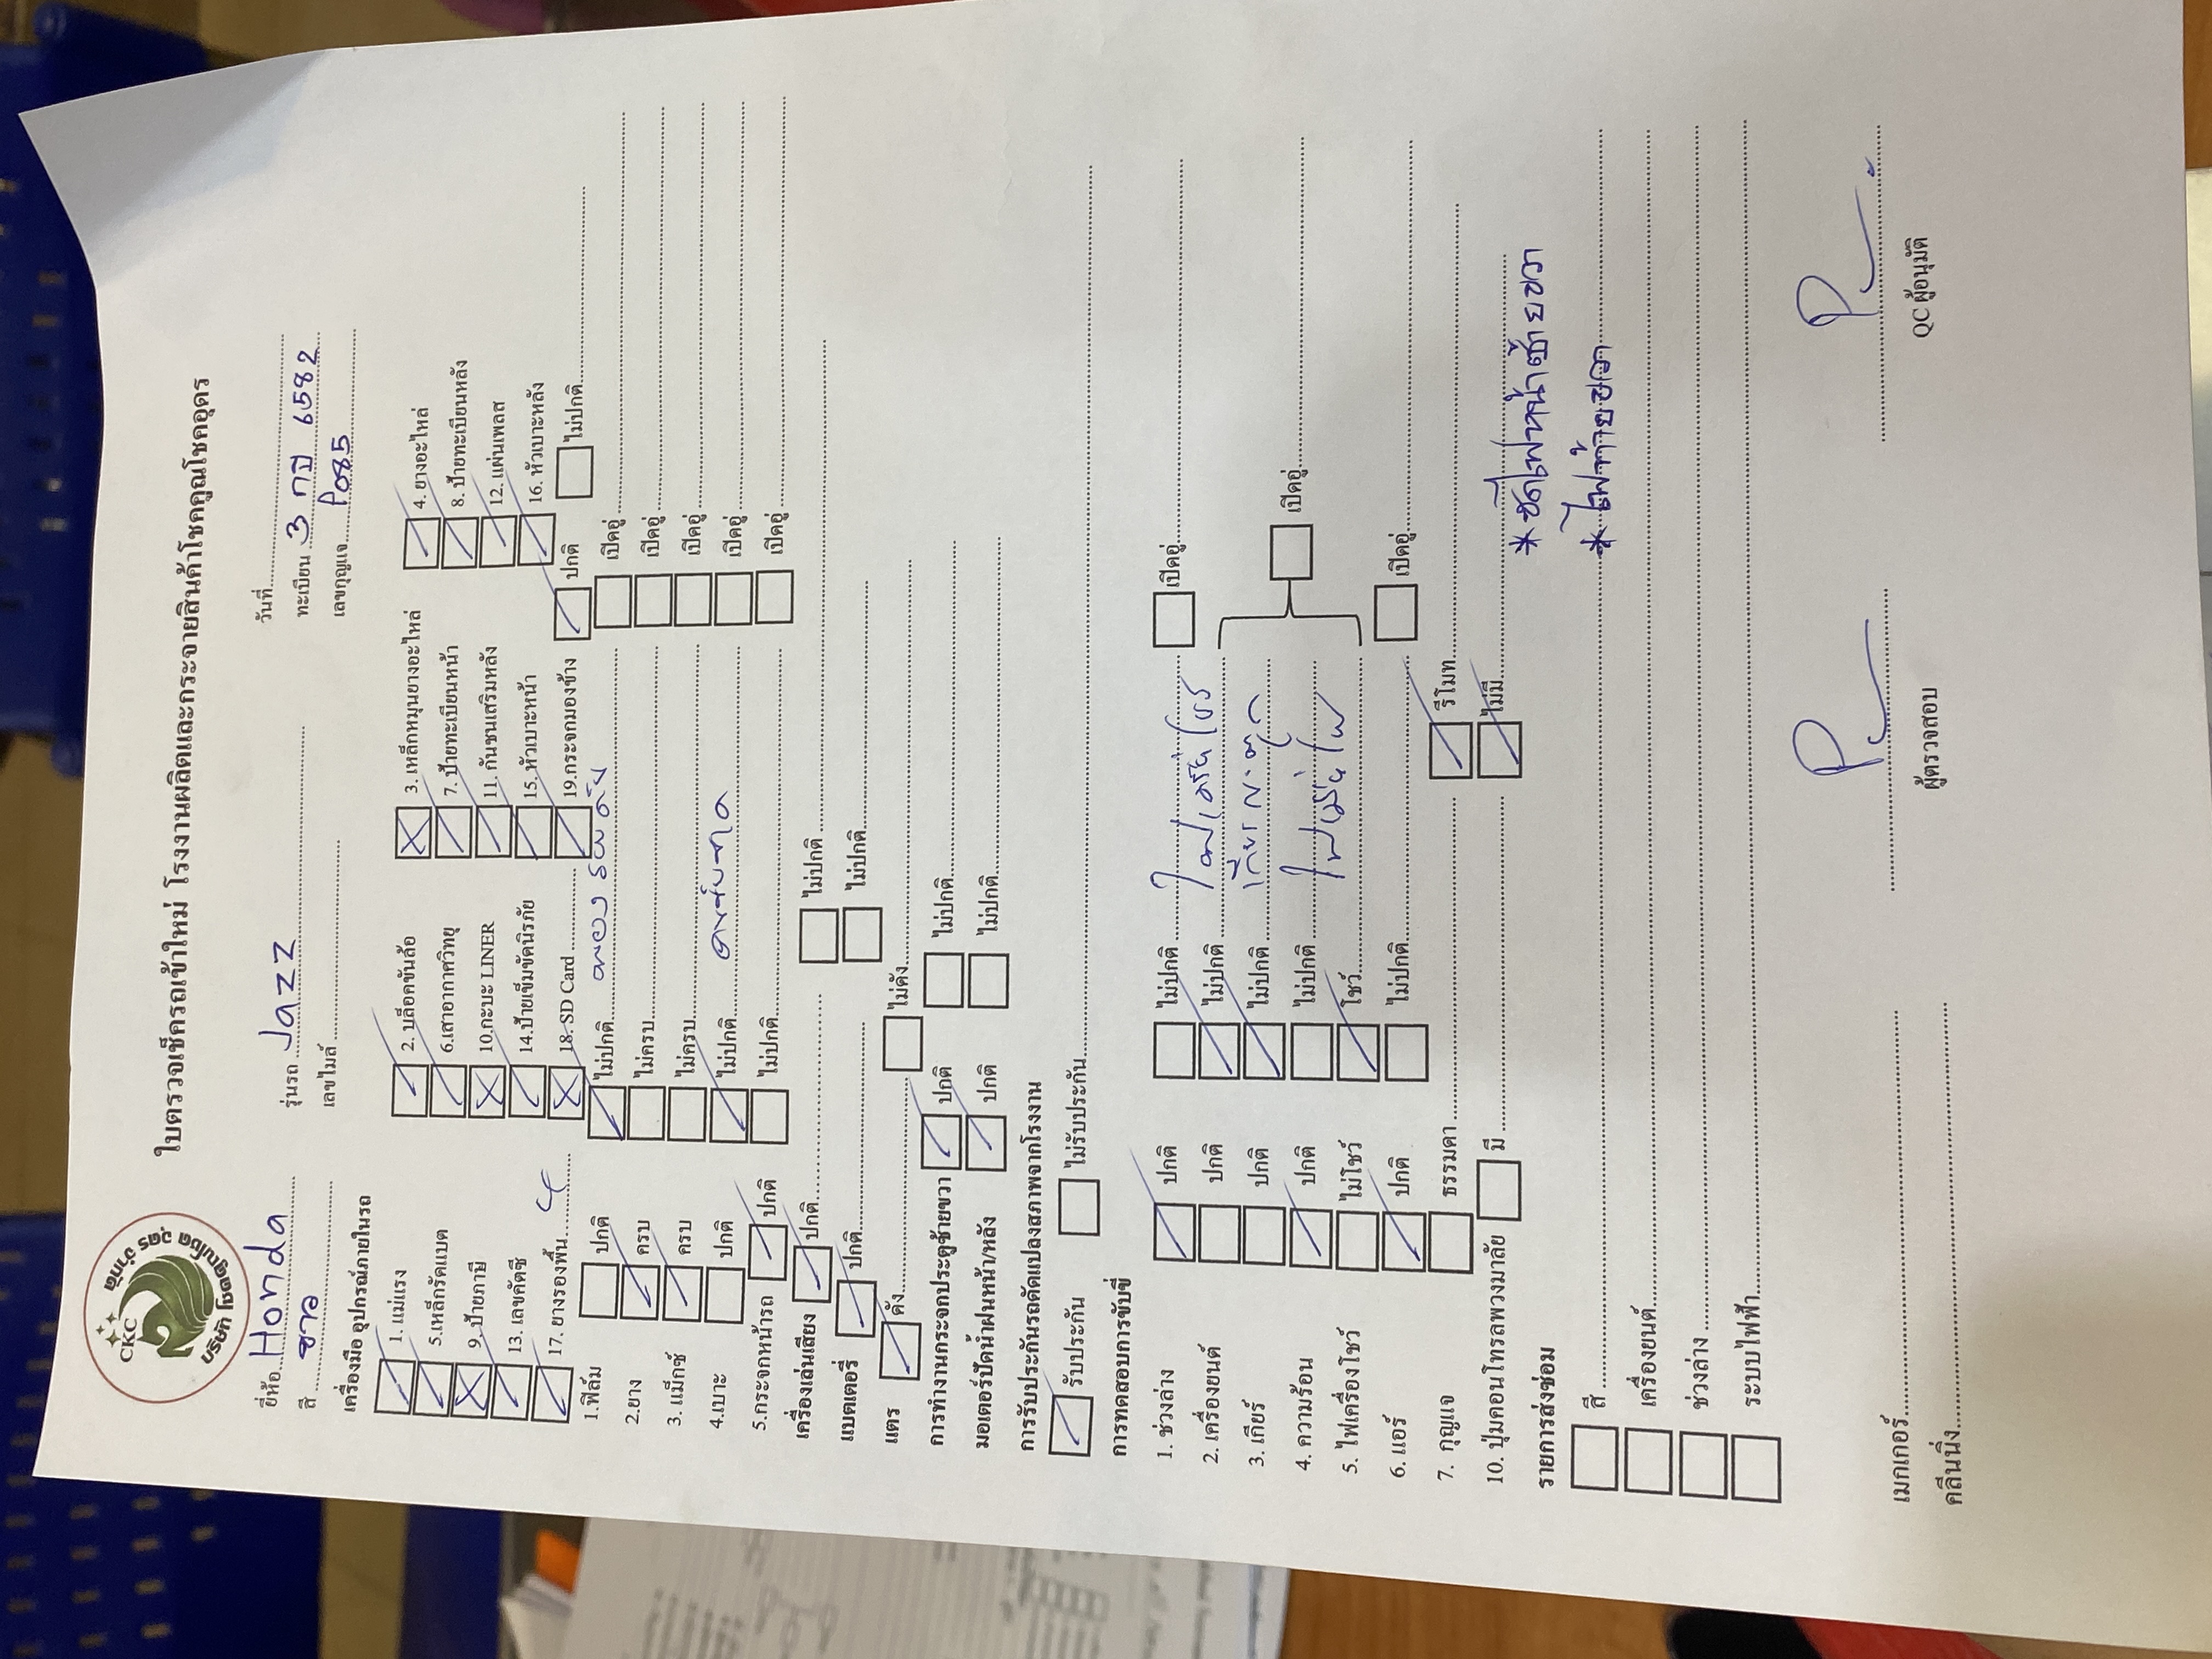 CKC
บริษัท โชคคูณโชค อุดร จำกัด
ใบตรวจเช็ครถเข้าใหม่ โรงงานผลิตและกระจายสินค้าโชคคูณโชคอุดร
วันที่
ยี่ห้อ Honda รุ่นรถ Jazz ทะเบียน 3 กป 6582
สี ขาว เลขไมล์ เลขกุญแจ P085
เครื่องมือ อุปกรณ์ภายในรถ
1. แม่แรง 2. บล็อคขันล้อ 3. เหล็กหมุนยางอะไหล่ 4. ยางอะไหล่
5.เหล็กรัดแบต 6.เสาอากาศวิทยุ 7. ป้ายทะเบียนหน้า 8. ป้ายทะเบียนหลัง
9. ป้ายภาษี 10.กะบะ LINER 11. กันชนเสริมหลัง 12. แผ่นเพลส
13. เลขคัตซี 14.ป้ายเข็มขัดนิรภัย 15. หัวเบาะหน้า 16. หัวเบาะหลัง
17. ยางรองพื้น 4 18. SD Card 19.กระจกมองข้าง ปกติ ไม่ปกติ
1.ฟิล์ม ปกติ ไม่ปกติ ลอง รอบคัน เปิดอู่
2.ยาง ครบ ไม่ครบ เปิดอู่
3. แม็กซ์ ครบ ไม่ครบ เปิดอู่
4.เบาะ ปกติ ไม่ปกติ เปิดอู่
5.กระจกหน้ารถ ปกติ ไม่ปกติ เปิดอู่
เครื่องเล่นเสียง ปกติ ไม่ปกติ
แบตเตอรี่ ปกติ ไม่ปกติ
แตร ดัง ไม่ดัง
การทำงานกระจกประตูซ้ายขวา ปกติ ไม่ปกติ
มอเตอร์ปัดน้ำฝนหน้า/หลัง ปกติ ไม่ปกติ
การรับประกันรถดัดแปลงสภาพจากโรงงาน
รับประกัน ไม่รับประกัน
การทดสอบการขับขี่
1. ช่วงล่าง ปกติ ไม่ปกติ เปิดอู่
2. เครื่องยนต์ ปกติ ไม่ปกติ ไฟเครื่องโชว์
3. เกียร์ ปกติ ไม่ปกติ เกียร์กระตุก
4. ความร้อน ปกติ ไม่ปกติ เปิดอู่
5. ไฟเครื่องโชว์ ไม่โชว์ โชว์
6. แอร์ ปกติ ไม่ปกติ เปิดอู่
7. กุญแจ ธรรมดา รีโมท
10. ปุ่มคอนโทรลพวงมาลัย มี ไม่มี
รายการส่งซ่อม *ขัดไฟหน้าซ้ายขวา
สี *ไฟท้ายขวา
เครื่องยนต์
ช่วงล่าง
ระบบไฟฟ้า
เมกเกอร์
คลีนนิ่ง ผู้ตรวจสอบ QC ผู้อนุมัติ